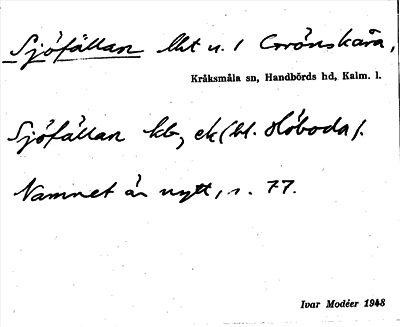 Sjöfällan lht u. / Grönskåra,
Kråksmåla sn, Handbörds hd, Kalm. l.
Sjöfällan kb, ek (bl. Höboda).
Namnet är nytt, s. 77.
Ivar Modéer 1948